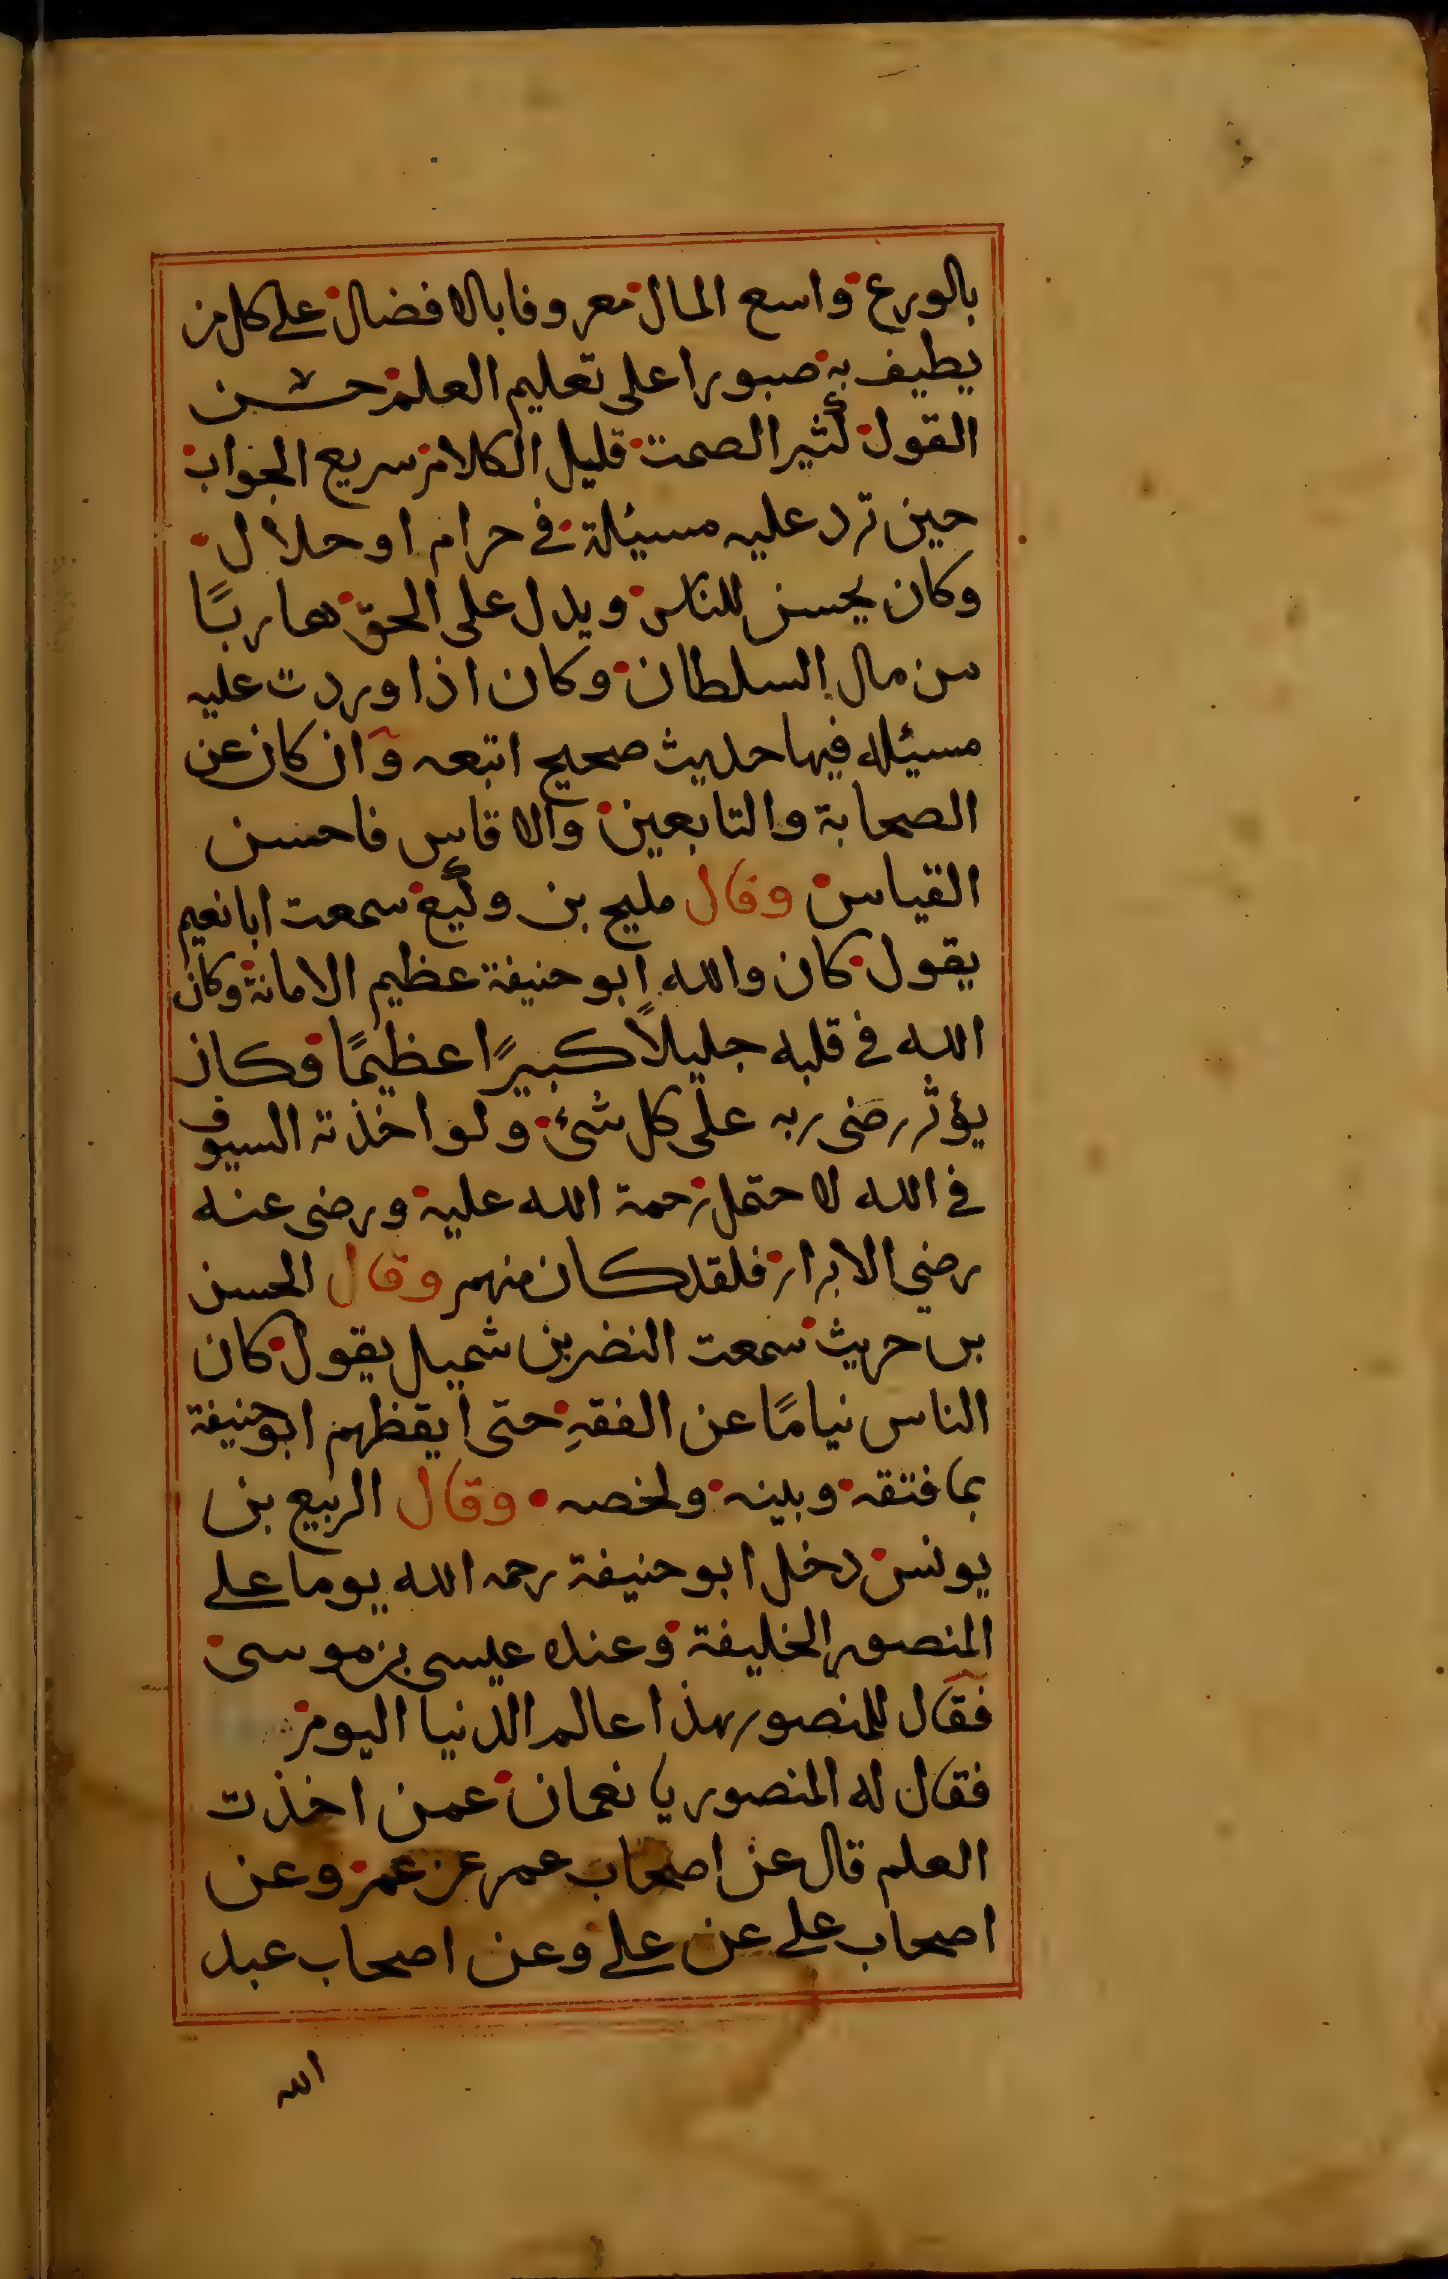 بالورع واسع المال معروفا بالافضال على كل من
يطيف به صبورا على تعليم العلم حسن
القول كثير الصمت قليل الكلام سريع الجواب
حين ترد عليه مسئلة في حرام او حلال
وكان يحسن للناس ويدل على الحقّ هاربًا
من مال السلطان وكان اذا وردت عليه
مسئله فيها حديث صحيح اتبعه وان كان عن
الصحابة والتابعين والا قاس فاحسن
القياس وقال مليح بن وكيع سمعت ابا نعيم
يقول كان والله ابو حنيفة عظيم الامانة وكان
الله في قلبه جليلاً كبيرًا عظيمًا فكان
يؤثر رضى ربه على كل شئ ولو اخذته السيوف
في الله لاحتمل رحمة الله عليه ورضى عنه
رضى الابرار فلقد كان منهم وقال الحسن
بن حريث سمعت النضر بن شميل يقول كان
الناس نيامًا عن الفقهِ حتى ايقظهم ابو حنيفة
بما فتقه وبينه ولخصه وقال الربيع بن
يونس دخل ابو حنيفة رحمه الله يوما على
المنصور الخليفة وعنده عيسى بن موسى
فقال للمنصور هذا عالم الدنيا اليوم
فقال له المنصور يا نعمان عمن اخذت
العلم قال عن اصحاب عمر عن عمر وعن
اصحاب على عن على وعن اصحاب عبد
الله